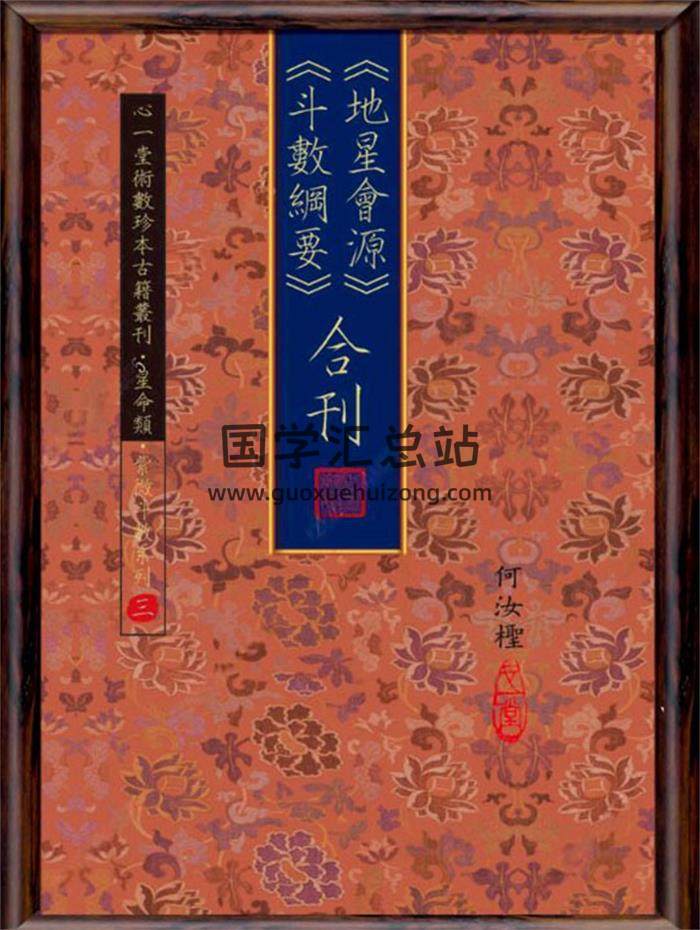 《地星會源》
《斗數綱要》
合刊
心一堂術數珍本古籍叢刊·星命類·紫微斗數系列
三
国学汇总站
www.guoxuehuizong.com
何汝檉
心一堂